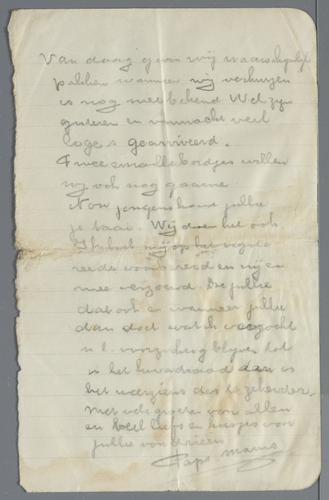 Van daag gaan wij waarschijnlijk
pakken wanneer wij verhuizen
is nog niet bekend Wel zijn
gisteren en vannacht veel
loge s gearriveerd.
Twee emaille bordjes willen
wij ook nog gaarne
Nou jongens houd jullie
je taai. Wij doen het ook
Ik heb mij op het ergste
reeds voorbereid en mij er
mee verzoend. Die jullie
dat ook en wanneer jullie
dan doet wat ik verzocht
n.l. voorzichtig blijven tot
is het
het weerziens des te zekerder
Met vele groeten van allen
en heel liefs en kusjes voor
jullie van drieen
Paps Mams